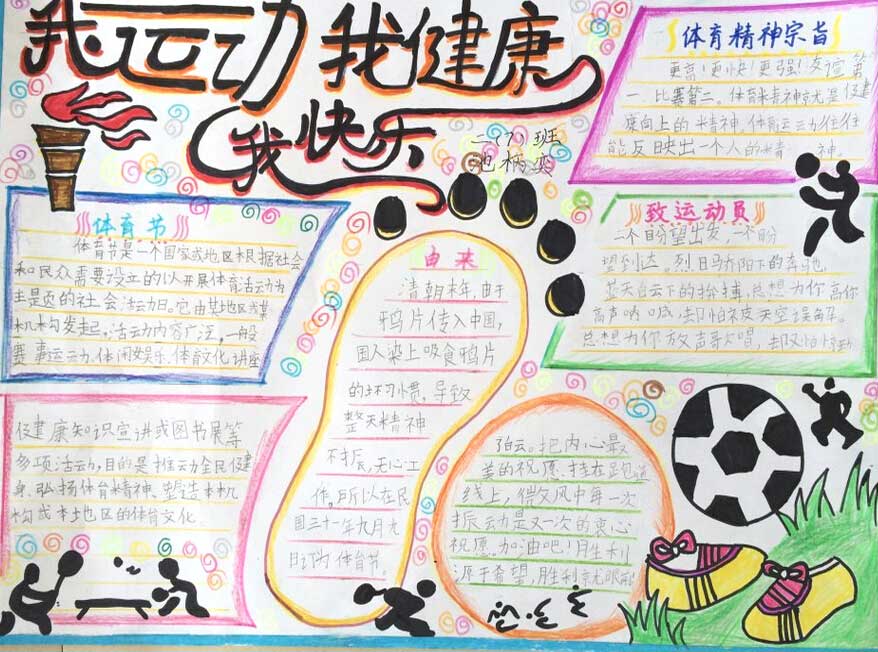 我运动我健康
我快乐
二(7)班
池柄奕
体育精神宗旨
更高!更快!更强!友谊第
一、比赛第二。体育精神就是健
康向上的精神,体育运动往往
能反映出一个人的精神。
体育节
体育节是一个国家或地区根据社会
和民众需要设立的以开展体育活动为
主要的社会活动日。它由某地区或某
机构发起,活动内容广泛。一般
赛事运动、休闲娱乐、体育文化、讲座
健康知识宣讲或图书展等
多项活动,目的是推动全民健
身、弘扬体育精神、塑造本机
构或本地区的体育文化
由来
清朝末年,由于
鸦片传入中国,
国人染上吸食鸦片
的坏习惯,导致
整天精神
不振,无心工
作。所以在民
国三十一年九月九
日订为体育节。
致运动员
一个盼望出发,一个盼
望到达。烈日骄阳下的奔驰,
蓝天白云下的拚搏,总想为你高
高声呐喊,却怕被天空误解。
总想为你放声歌唱,却又怕惊动
白云。把内心最
美的祝愿,挂在跑道
线上,微风中每一次
振动是又一次的衷心
祝愿。加油吧!胜利
源于希望,胜利就